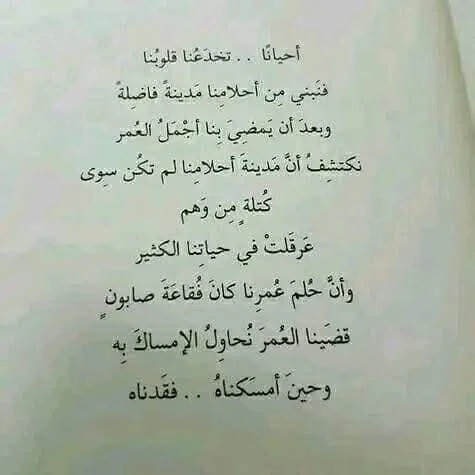 أحيانًا . . تخدَعُنا قلوبُنا
فنَبني مِن أحلامِنا مَدينةً فاضِلةً
وبعدَ أن يَمضيَ بِنا أجْمَلُ العُمر
نكتشِفُ أنَّ مَدينةَ أحلامِنا لم تكُن سِوى
كُتلةٍ مِن وَهم
عَرقَلتْ في حياتِنا الكثير
وأنَّ حُلمَ عُمرِنا كانَ فُقاعَةَ صابونٍ
قضَينا العُمرَ نُحاوِلُ الإمساكَ بِه
وحينَ أمسَكناهُ . . فقَدناه